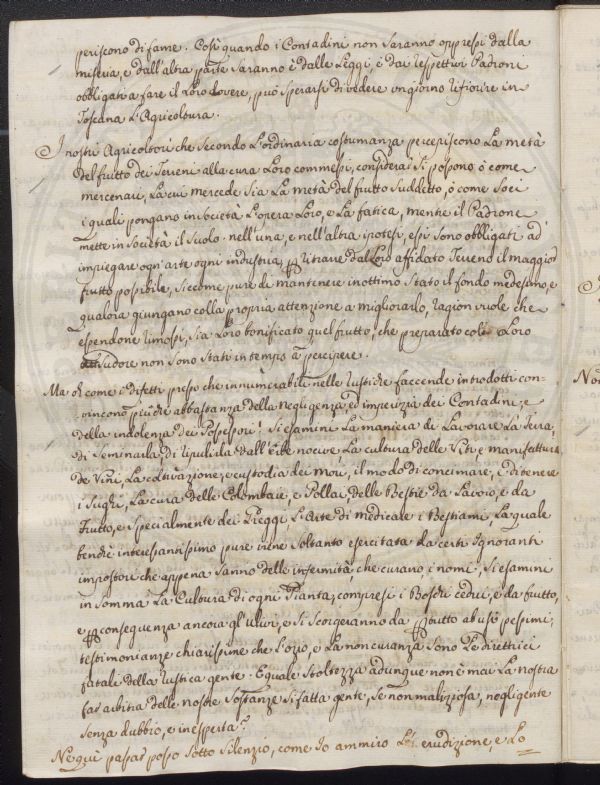 periscono di fame. Così quando i Contadini non saranno oppressi dalla
miseria, e dall'altra parte saranno e dalle Leggi, e dai respettivi Padroni
obbligati a fare il loro dovere, può sperarsi di vedere un giorno rifiorire in
Toscana L'Agricoltura.
I nostri Agricoltori che secondo L'ordinaria costumanza percepiscono La metà
del frutto dei Terreni alla cura Loro commessi, considerar si possono ò come
mercenari, La cui mercede sia La metà del frutto suddetto, ò come Soci
i quali pongano in Società L'opera Loro, e La fatica, mentre il Padrone
mette in Società il suolo. nell'una, e nell'altra ipotesi, essi sono obbligati ad
impiegare ogn'arte ogni industria, ritrarre dal Loro affidato Terreno il maggior
frutto possibile, siccome pure di mantenere in ottimo stato il fondo medesimo, e
qualora giungano colla propria attenzione a migliorarlo, ragion vuole che
essendone rimossi, sia Loro bonificato quel frutto, che preparato col Loro
sudore non sono stati in tempo a percipere.
Ma oh come i difetti presso che innumerabili nelle rustiche faccende introdotti con-
vincono più che abbastanza della negligenza, ed imperizia dei Contadini, e
della indolenza dei Possessori! Si esamini La maniera di Lavorare La Terra,
di Seminarla, di ripulirla dall'erbe nocive La cultura delle Viti, e manifattura
de Vini, La coltivazione, e custodia dei Mori, il modo di concimare, e di tenere
i sughi, La cura delle Colombaie, e Pollai, delle Bestie da Lavoro, e da
frutto, e specialmente dei Greggi L'Arte di medicare i Bestiami, La quale
benchè interessantissimo pure viene soltanto esercitata da certi Ignoranti
impostori che appena sanno delle infermità, che curano, i nomi, si esamini
in somma La Cultura di ogni Pianta, compresi i Boschi cedui, e da frutto,
e conseguenza ancora gl'ulivi, e si scorgeranno da tutto abusi pessimi,
testimonianze chiarissime che L'ozio, e La noncuranza sono Le direttrici
fatali della rustica gente. Eguale stoltezza adunque non è mai La nostra
far arbitra delle nostre sostanze sì fatta gente, se non maliziosa, negligente
senza dubbio, e inesperta?
Ne qui passar posso sotto silenzio, come Io ammiro erudizione, e Lo